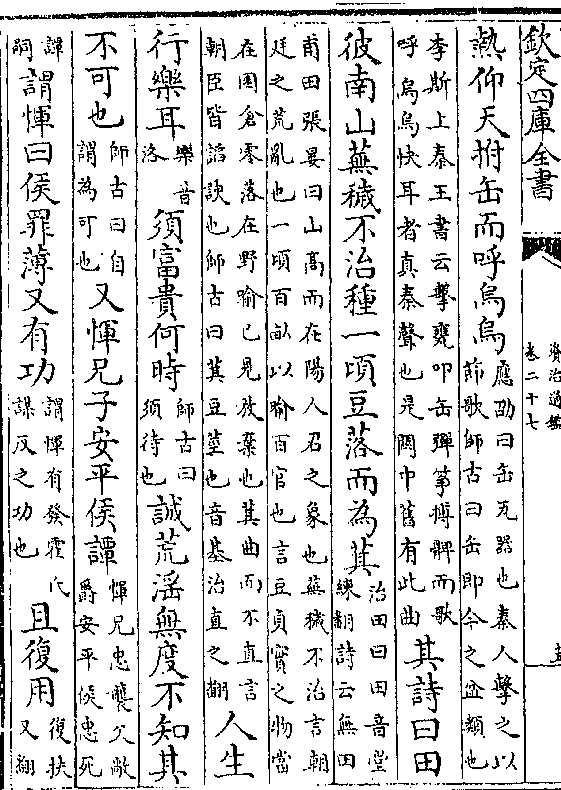 欽定四庫全書
資治通鑑
卷二十七
熱仰天拊缶而呼烏烏應劭曰缶瓦器也秦人擊之以節歌師古曰缶即今之盆類也
李斯上秦王書云擊甕叩缶彈箏搏髀而歌呼烏烏快耳者真秦聲也是關中舊有此曲其詩曰田
彼南山蕪穢不治種一頃豆落而為萁治田曰田音堂練翻詩云無田
甫田張晏曰山高而在陽人君之象也蕪穢不治言朝廷之荒亂也一頃百畝以喻百官也言豆貞實之物當
在囷倉零落在野喻已見放棄也萁曲而不直言朝臣皆諂諛也師古曰萁豆莖也音基治直之翻人生
行樂耳樂音洛須富貴何時師古曰須待也誠荒淫無度不知其
不可也師古曰自謂為可也又惲兄子安平侯譚惲兄忠襲父敞爵安平侯忠死
譚嗣謂惲曰侯罪薄又有功謂惲有發霍氏謀反之功也且復用復扶又翻